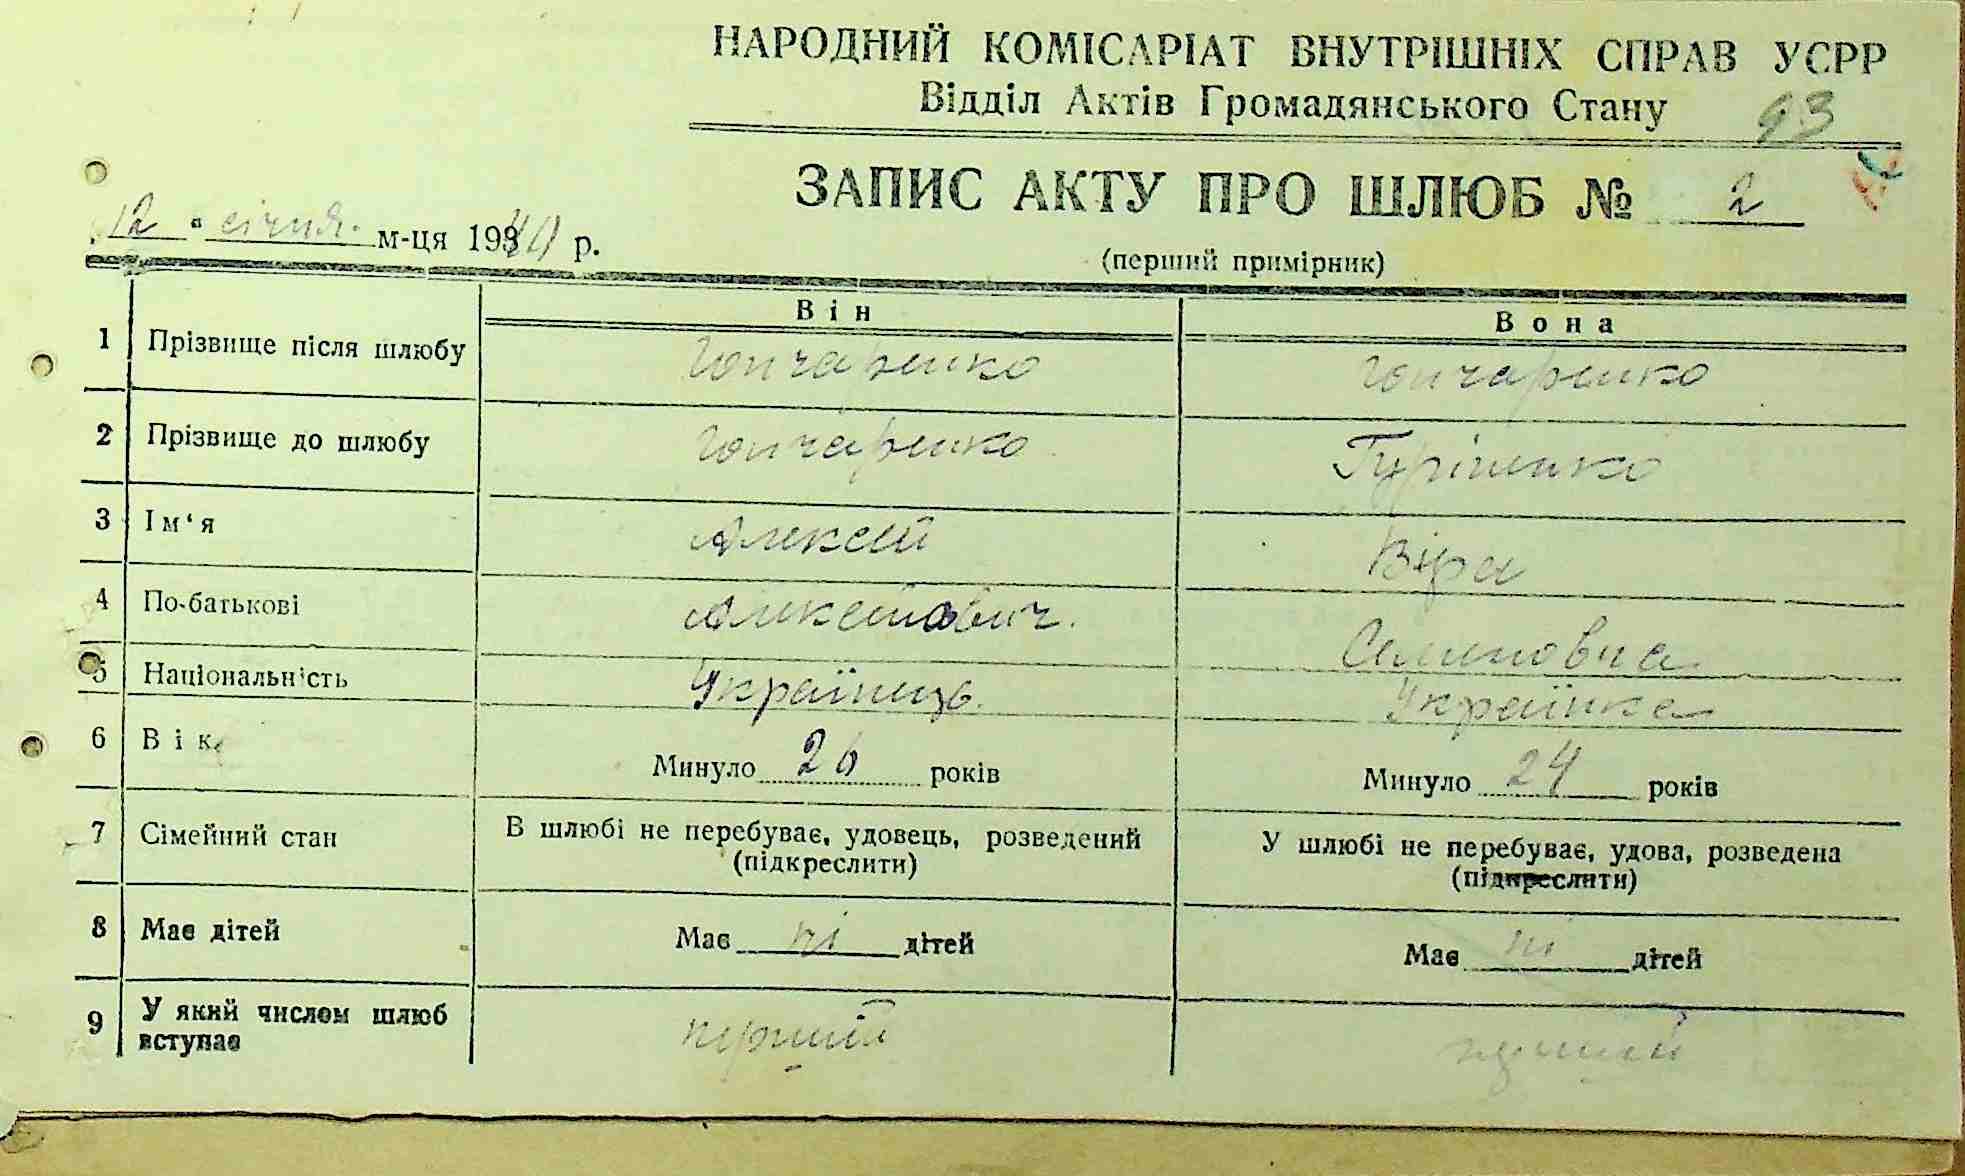 НАРОДНИЙ КОМІСАРІАТ ВНУТРІШНІХ СПРАВ УСРР
Відділ Актів Громадянського Стану 93
ЗАПИС АКТУ ПРО ШЛЮБ № 2
12 " січня м-ця 1940 р.
(перший примірник)
Він Вона
1 Прізвище після шлюбу Гончаренко Гончаренко
2 Прізвище до шлюбу Гончаренко
3 Ім‘я Алексей Віра
4 По-батькові Алексейович. Семеновна
5 Національність Українець. Українка
6 Вік Минуло 26 років Минуло 24 років
7 Сімейний стан В шлюбі не перебуває, удовець, розведений У шлюбі не перебуває, удова, розведена
(підкреслити) (підкреслити)
8 Має дітей Має ні дітей Має ні дітей
9 У який числом шлюб вступає перший перший